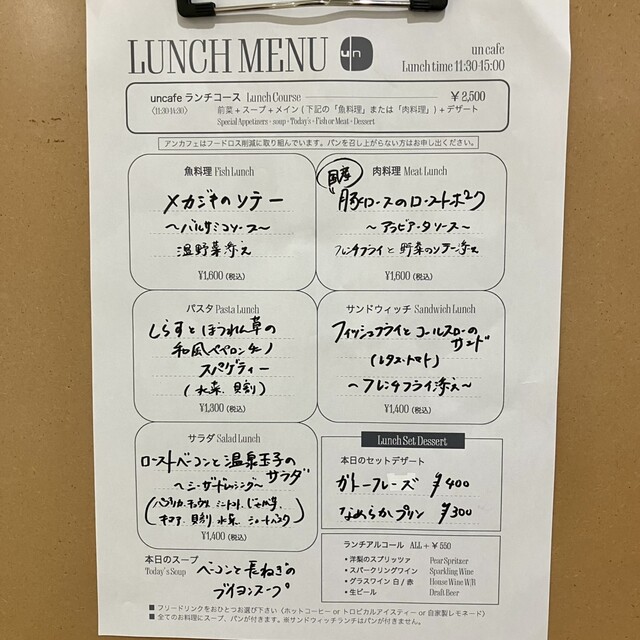 LUNCH MENU un
un cafe
Lunch time 11:30-15:00
uncafe ランチコース Lunch Course ¥2,500
(11:30-14:30) 前菜+スープ+メイン(下記の「魚料理」または「肉料理」)+デザート
Special Appetizers・soup・Today's・Fish or Meat・Dessert
アンカフェはフードロス削減に取り組んでいます。パンを召し上がらない方はお申し出ください。
魚料理 Fish Lunch
メカジキのソテー
〜バルサミコソース〜
温野菜添え
¥1,600(税込)
肉料理 Meat Lunch
国産
豚ロースのローストポーク
〜アラビアータソース〜
フレンチフライと野菜のソテー添え
¥1,600(税込)
パスタ Pasta Lunch
しらすとほうれん草の
和風ペペロンチーノ
スパゲティー
(水菜、貝割)
¥1,300(税込)
サンドウィッチ Sandwich Lunch
フィッシュフライとコールスローの
サンド
(レタス・トマト)
〜フレンチフライ添え〜
¥1,400(税込)
サラダ Salad Lunch
ローストベーコンと温泉玉子の
サラダ
〜シーザードレッシング〜
(パプリカ、キャベツ、ミニトマト、じゃが芋、
貝割、水菜、
¥1,400(税込)
Lunch Set Dessert
本日のセットデザート
ガトーフレーズ ¥400
なめらかプリン ¥300
本日のスープ
Today's Soup
ベーコンと長ねぎの
ブイヨンスープ
ランチアルコール ALL+¥550
・洋梨のスプリッツァ Pear Spritzer
・スパークリングワイン Sparkling Wine
・グラスワイン 白/赤 House Wine W/R
・生ビール Draft Beer
■ フリードリンクをおひとつお選び下さい(ホットコーヒー or トロピカルアイスティー or 自家製レモネード)
■ 全てのお料理にスープ、パンが付きます。※サンドウィッチランチはパンが付きません。